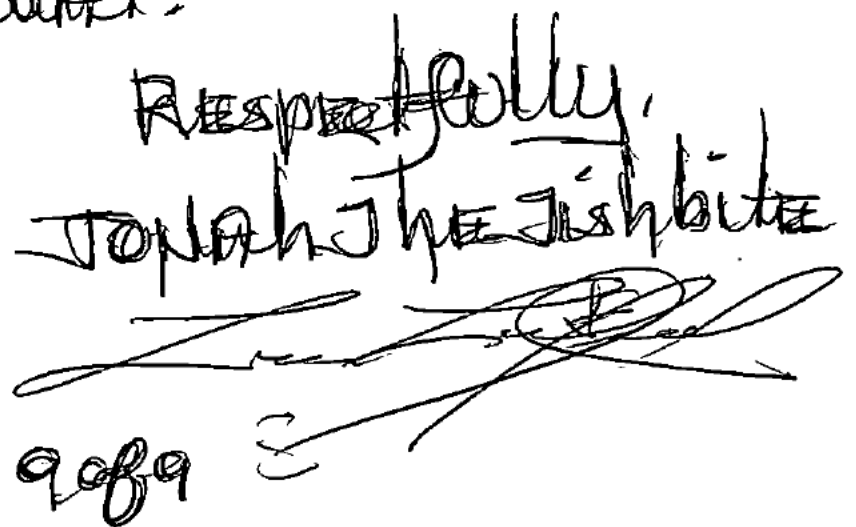 Respectfully,
Jonah The Tishbite
9 of 9